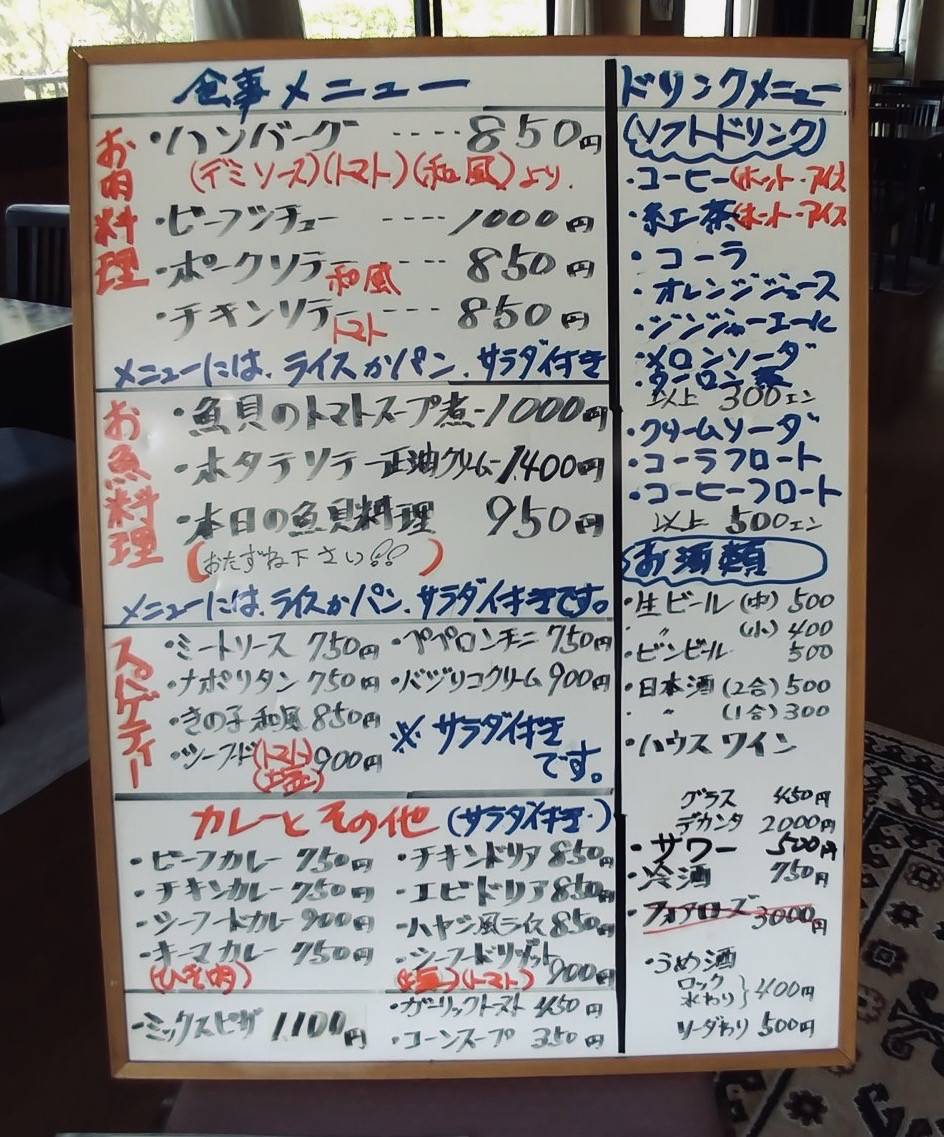 食事メニュー
お肉料理
・ハンバーグ ---- 850円
(デミソース)(トマト)(和風)より.
・ビーフシチュー ---- 1000円
・ポークソテー 和風 --- 850円
・チキンソテー トマト --- 850円
メニューには、ライスかパン、サラダ付き
お魚料理
・魚貝のトマトスープ煮-1000円
・ホタテソテー正油クリーム-1.400円
・本日の魚貝料理 950円
(おたずね下さい!!)
メニューには、ライスかパン、サラダ付きです。
スパゲティー
・ミートソース 750円
・ナポリタン 750円
・きの子和風 850円
・シーフード(トマト)(塩) 900円
・ペペロンチーニ 750円
・バジリコクリーム 900円
※ サラダ付き
です。
カレーとその他 (サラダ付き・)
・ビーフカレー 750円
・チキンカレー 750円
・シーフードカレー 900円
・キーマカレー 750円
(ひき肉)
・チキンドリア 850円
・エビドリア 850円
・ハヤシ風ライス 850円
・シーフードリゾット
(塩)(トマト) 900円
・ミックスピザ 1100円
・ガーリックトースト 450円
・コーンスープ 350円
ドリンクメニュー
(ソフトドリンク)
・コーヒー(ホット・アイス
・紅茶(ホット・アイス
・コーラ
・オレンジジュース
・ジンジャーエール
・メロンソーダ
・ウーロン茶
以上 300エン
・クリームソーダ
・コーラフロート
・コーヒーフロート
以上 500エン
お酒類
・生ビール (中) 500
〃 (小) 400
・ビンビール 500
・日本酒 (2合) 500
・ 〃 (1合) 300
・ハウスワイン
グラス 450円
デカンタ 2000円
・サワー 500円
・冷酒 750円
・フォアローズ 3000円
・うめ酒
ロック
水わり } 400円
ソーダわり 500円